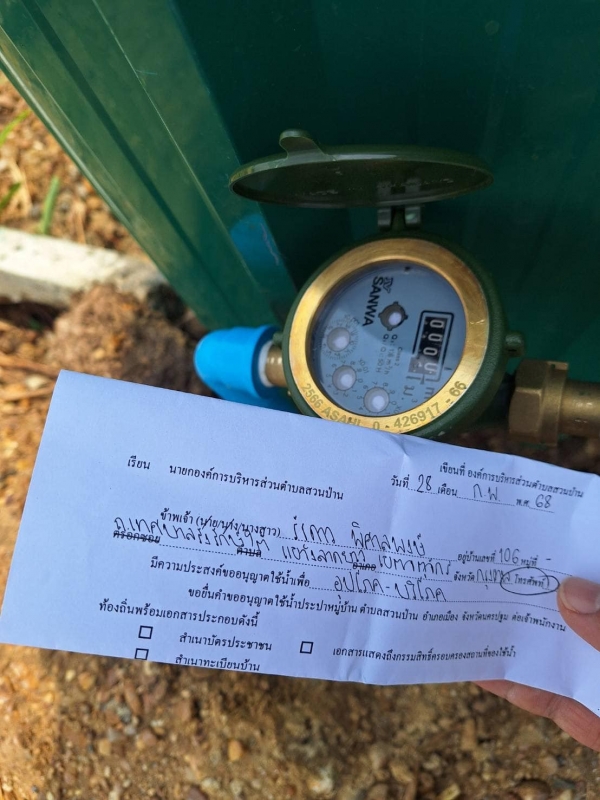 SANWA
0001
2566 ASAHI 0-426917-66
เขียนที่ องค์การบริหารส่วนตำบลสวนป่าน
วันที่ 28 เดือน ก.พ. พ.ศ. 68
เรียน นายกองค์การบริหารส่วนตำบลสวนป่าน
ข้าพเจ้า (นาย/นาง/นางสาว) พิศาลพงษ์ อยู่บ้านเลขที่ 106 หมู่ที่ -
ตรอก/ซอย ถ.เทศบาล ตำบล แขวงลาดยาว อำเภอ เขตจตุจักร จังหวัด กรุงเทพฯ โทรศัพท์
มีความประสงค์ขออนุญาตใช้น้ำเพื่อ อุปโภค-บริโภค
ขอยื่นคำขออนุญาตใช้น้ำประปาหมู่บ้าน ตำบลสวนป่าน อำเภอเมือง จังหวัดนครปฐม ต่อเจ้าพนักงาน
ท้องถิ่นพร้อมเอกสารประกอบดังนี้
สำเนาบัตรประชาชน
เอกสารแสดงถึงกรรมสิทธิ์ครอบครองสถานที่ขอใช้น้ำ
สำเนาทะเบียนบ้าน